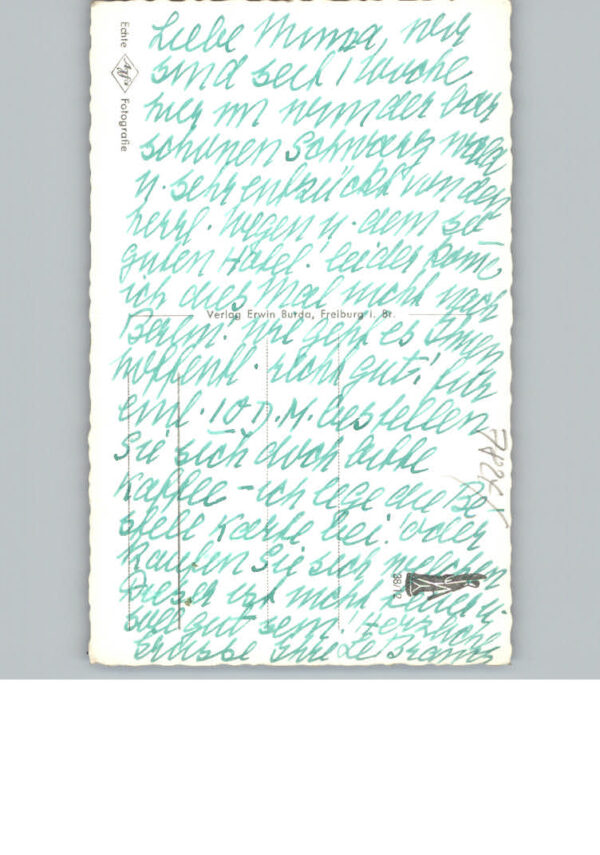 Liebe Minna, wir
sind seit 1 Woche
hier im wunderbar
schönen Schwarzwald
u. sehr entzückt von den
herrl. Wegen u. dem so
guten Hotel. Leider komme
ich dies Mal nicht nach
Berlin! Wie geht es Ihnen
hoffentl. recht gut! Für
einl. 10 D.M. bestellen
Sie sich doch bitte
Kaffee – ich lege die Be
stell Karte bei! Oder
kaufen Sie sich welchen
dieser ist nicht teuer u.
soll gut sein! Herzliche
Grüsse Ihre
Echte Agfa Fotografie
Verlag Erwin Burda, Freiburg i. Br.
38/12